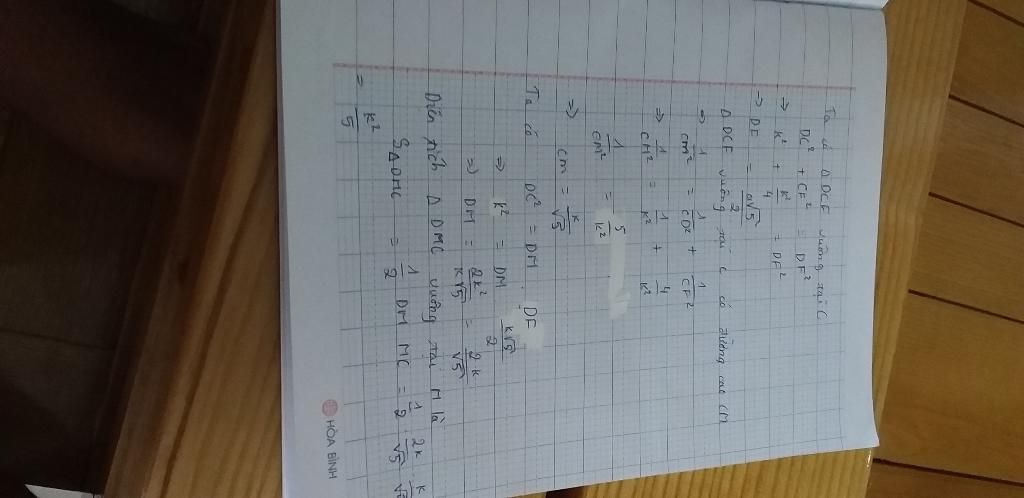 Ta có Δ DCF vuông tại C
DC² + CF² = DF²
→ k² + k²/4 = DF²
→ DF = a√5/2
Δ DCF vuông tại C có đường cao CM
⇒ 1/CM² = 1/CD² + 1/CF²
⇒ 1/CM² = 1/k² + 4/k²
1/CM² = 5/k²
⇒ CM = k/√5
Ta có DC² = DM . DF
⇒ k² = DM k√5/2
⇒ DM = 2k²/k√5 = 2k/√5
Diện tích Δ DMC vuông tại M là
SΔDMC = 1/2 DM MC = 1/2 . 2k/√5 . k/√5
= k²/5
HÒA BÌNH